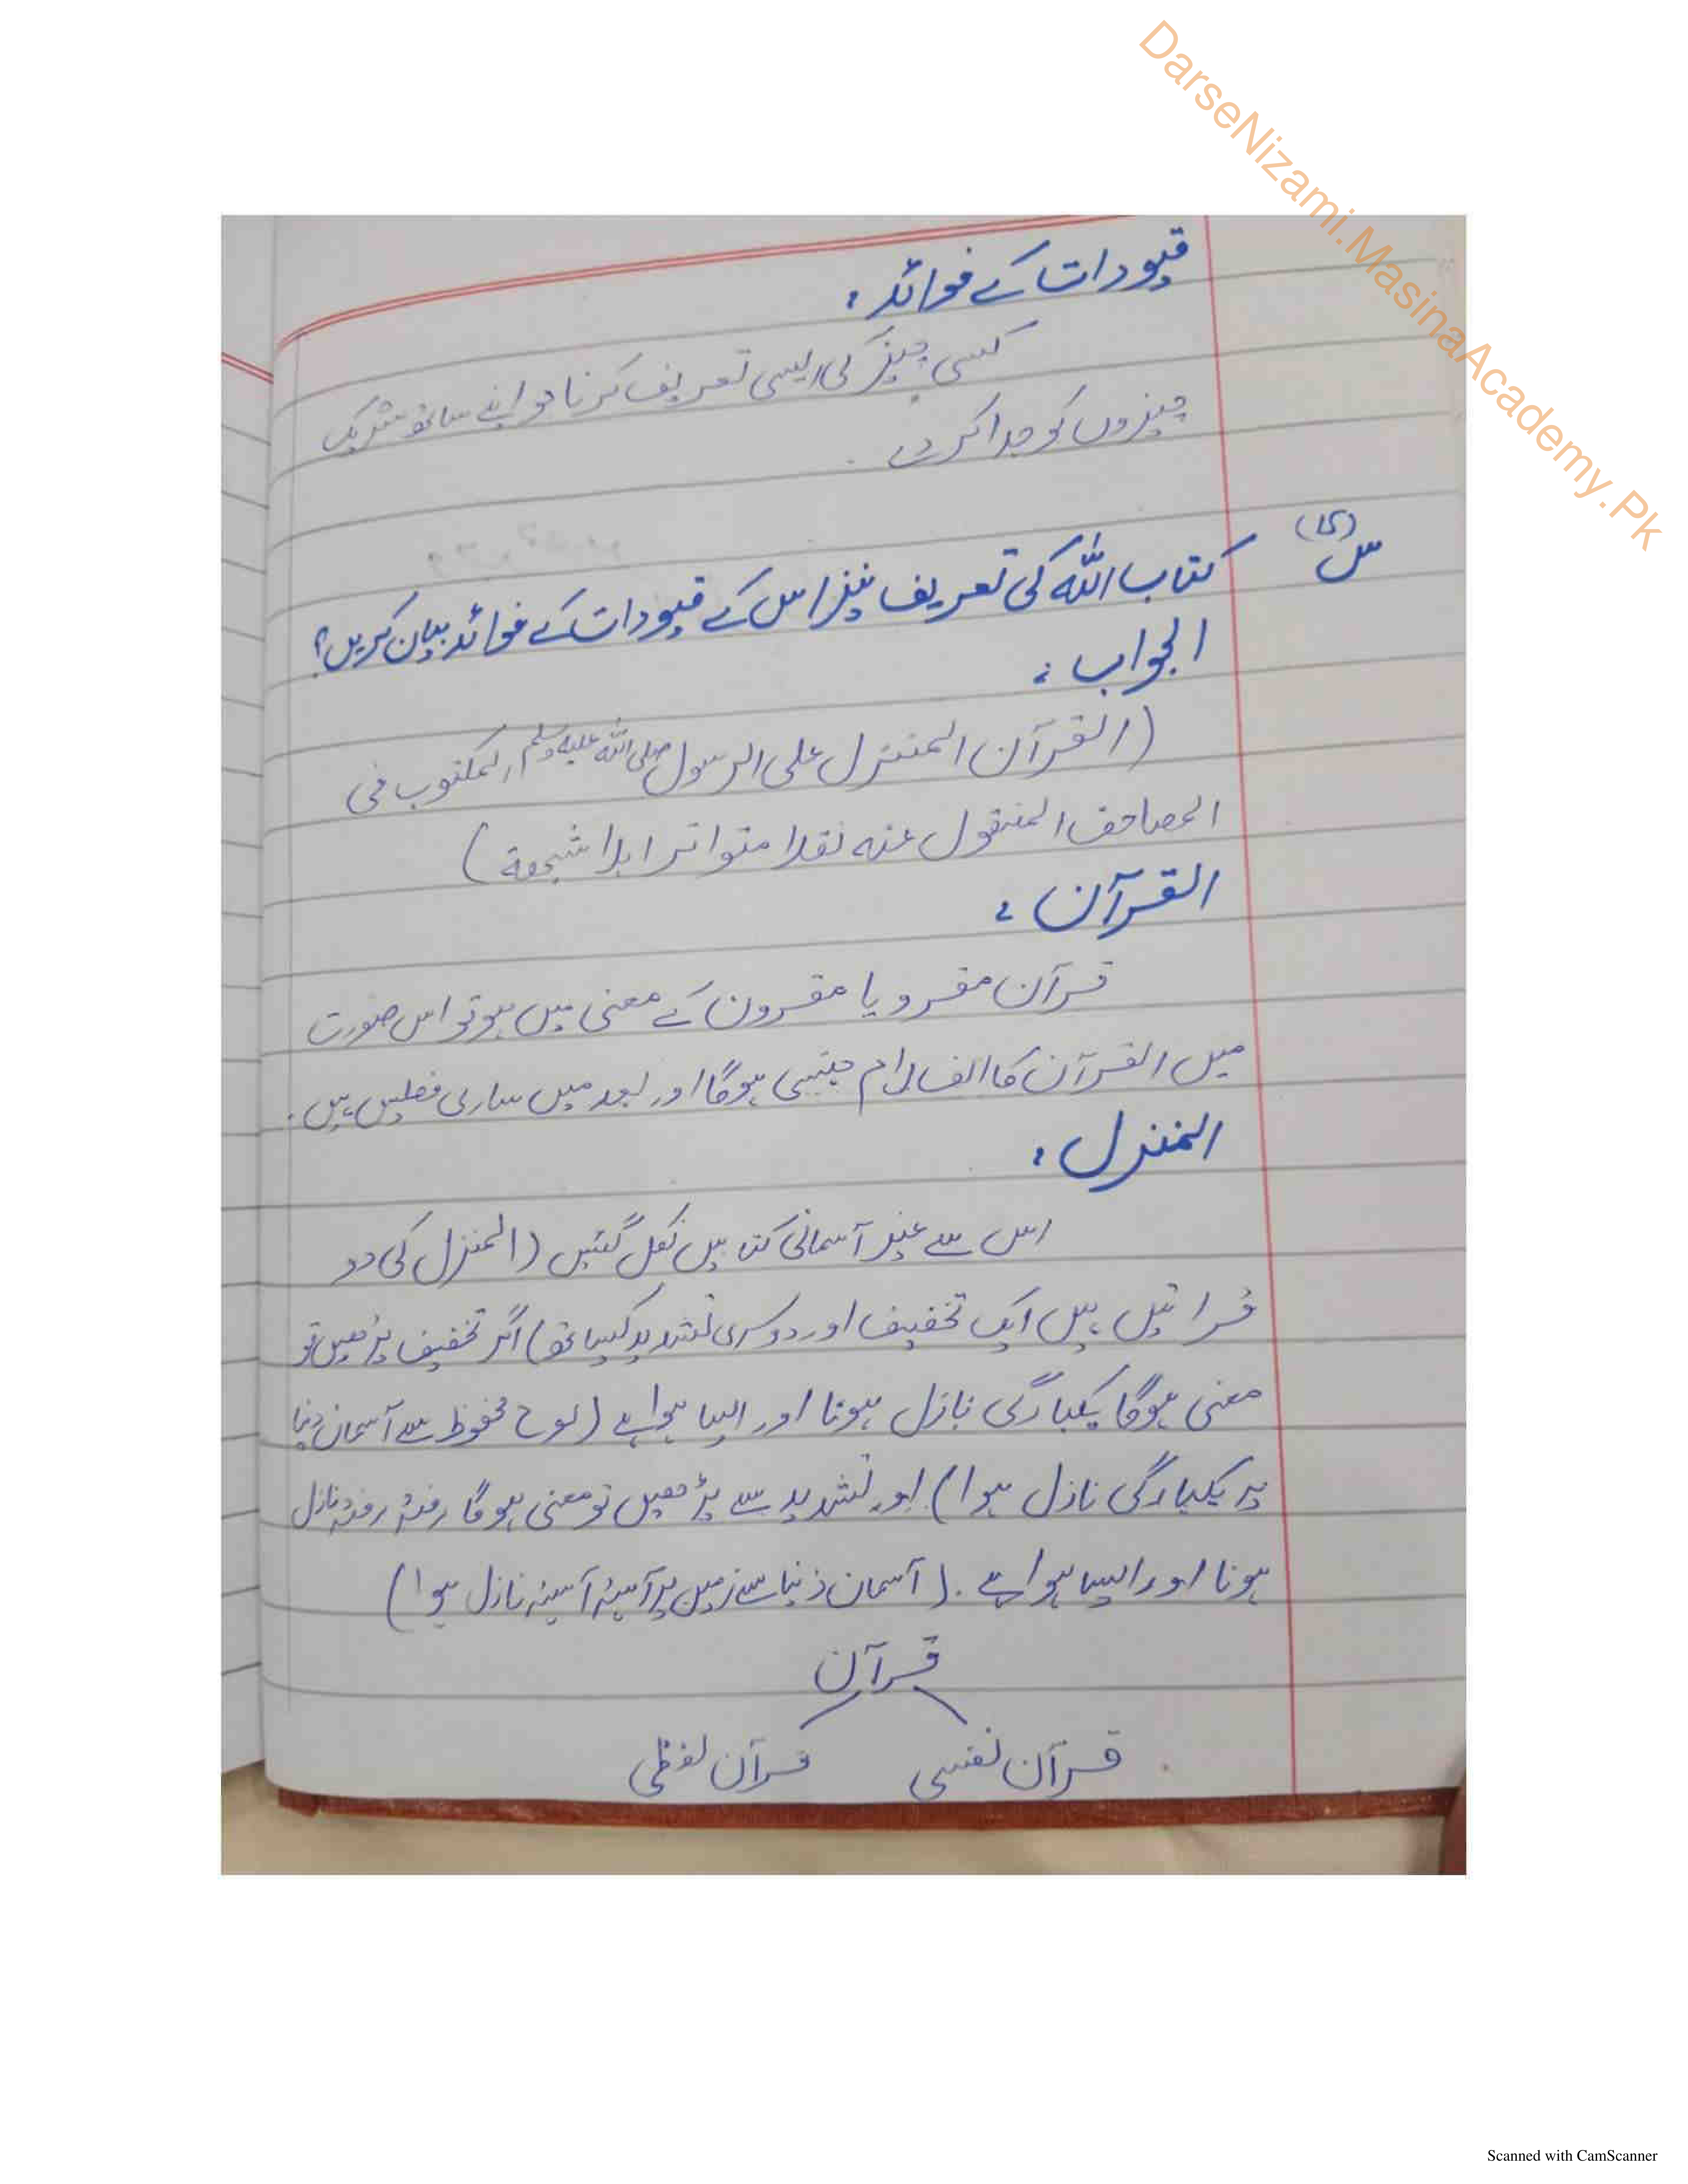 DarseNizami.MasinaAcademy.Pk
قیودات کے فوائد :
کسی چیز کی ایسی تعریف کرنا جو اپنے ساتھ شریک
چیزوں کو جدا کر دے
س (15) کتاب اللہ کی تعریف نیز اس کے قیودات کے فوائد بیان کریں؟
الجواب :
(القرآن المنزل علی الرسول صلی اللہ علیہ وسلم المکتوب فی
المصاحف المنقول عنہ نقلا متواترا بلا شبھة)
القرآن :
قرآن مقرو یا مقرون کے معنی میں ہو تو اس صورت
میں القرآن کا الف لام جنسی ہوگا اور بعد میں ساری فصلیں ہیں.
المنزل :
اس سے غیر آسمانی کتابیں نکل گئیں (المنزل کی دو
قراتیں ہیں ایک تخفیف اور دوسری تشدید کیساتھ) اگر تخفیف پڑھیں تو
معنی ہوگا یکبارگی نازل ہونا اور ایسا ہوا ہے (لوح محفوظ سے آسمان دنیا
پر یکبارگی نازل ہوا) اور تشدید سے پڑھیں تو معنی ہوگا رفتہ رفتہ نازل
ہونا اور ایسا ہوا ہے. (آسمان دنیا سے زمین پر آہستہ آہستہ نازل ہوا)
قرآن
قرآن نفسی قرآن لفظی
Scanned with CamScanner